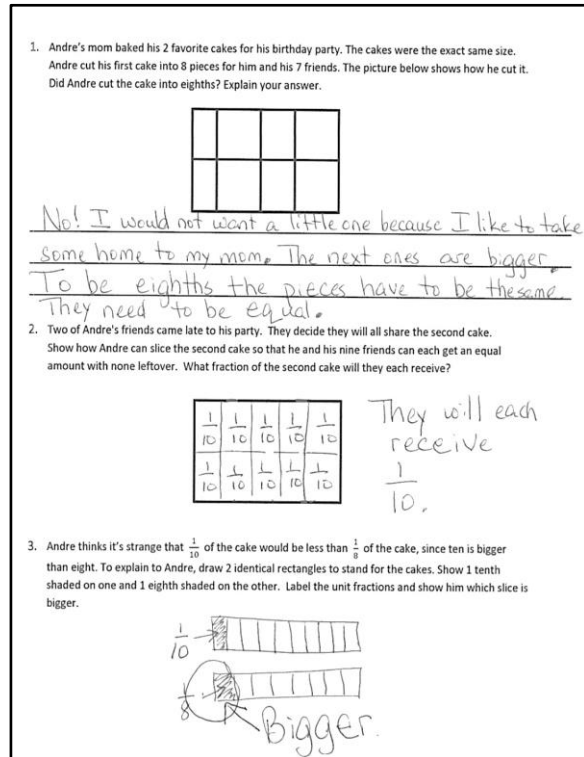 1. Andre's mom baked his 2 favorite cakes for his birthday party. The cakes were the exact same size.
Andre cut his first cake into 8 pieces for him and his 7 friends. The picture below shows how he cut it.
Did Andre cut the cake into eighths? Explain your answer.
No! I would not want a little one because I like to take
some home to my mom. The next ones are bigger.
To be eighths the pieces have to be the same.
They need to be equal.
2. Two of Andre's friends came late to his party. They decide they will all share the second cake.
Show how Andre can slice the second cake so that he and his nine friends can each get an equal
amount with none leftover. What fraction of the second cake will they each receive?
1/10 1/10 1/10 1/10 1/10
1/10 1/10 1/10 1/10 1/10
They will each
receive
1/10.
3. Andre thinks it's strange that 1/10 of the cake would be less than 1/8 of the cake, since ten is bigger
than eight. To explain to Andre, draw 2 identical rectangles to stand for the cakes. Show 1 tenth
shaded on one and 1 eighth shaded on the other. Label the unit fractions and show him which slice is
bigger.
1/10
1/8
Bigger.